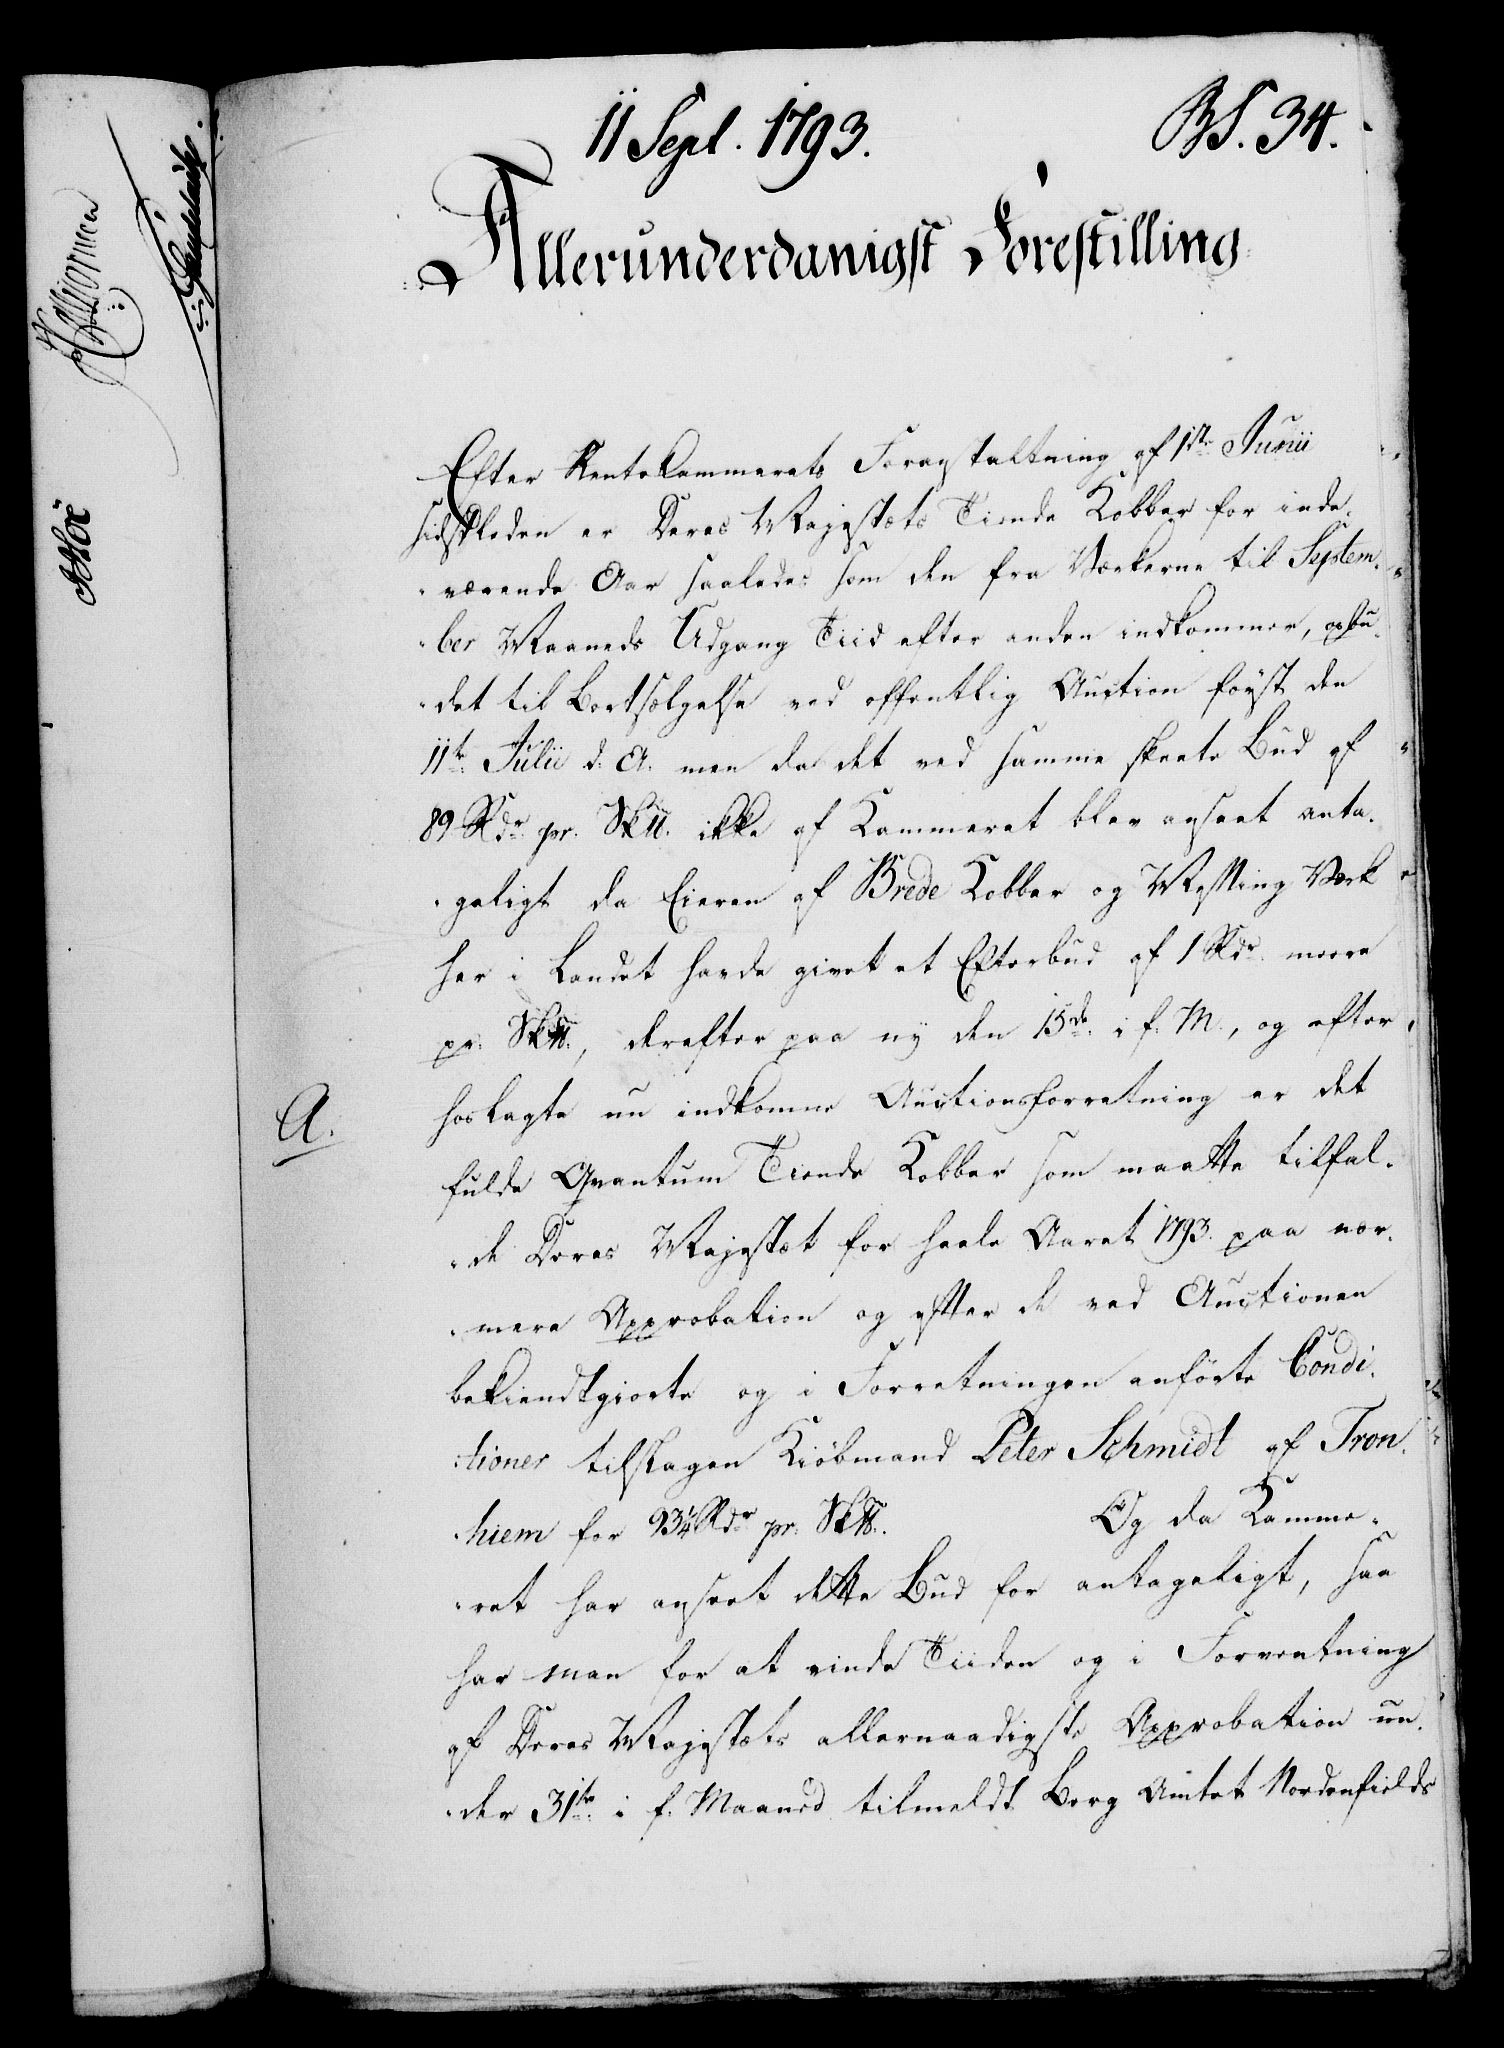 11 Sept. 1793.
BS. 34.
Allerunderdanigst Forestilling
Efter Rentekammerets Foranstaltning af 1ste Junii
sidstleden er Deres Majestæts Tiende Kobber for inde-
-værende Aar saaledes som den fra Værkerne til Septem-
-ber Maaneds Udgang Tiid efter anden indkommer, opbu-
-det til Bortsælgelse ved offentlig Auction først den
11te Julii d. A. men da det ved samme skeete Bud af
89 Rdr pr. Sk℔. ikke af Kammeret blev anseet anta-
-geligt da Eieren af Brede Kobber og Messing Værk
her i Landet havde givet et Efterbud af 1 Rdr meere
pr. Sk℔., derefter paa ny den 15de i f. M., og efter
A.
hoslagte nu indkomne Auctionsforretning er det
fulde Qvantum Tiende Kobber som maatte tilfal-
-de Deres Majestæt for heele Aaret 1793. paa nær-
-mere Approbation og efter de ved Auctionen
bekiendtgiorte og i Forretningen anførte Condi-
-tioner tilslagen Kiøbmand Peter Schmidt af Tron-
-hiem for 93¼ Rdr pr. Sk℔. Og da Kamme-
-ret har anseet dette Bud for antageligt, saa
har man for at vinde Tiiden og i Forventning
af Deres Majestæts allernaadigste Approbation un-
-der 31te i f. Maaned tilmeldt Berg Amtet Nordenfields